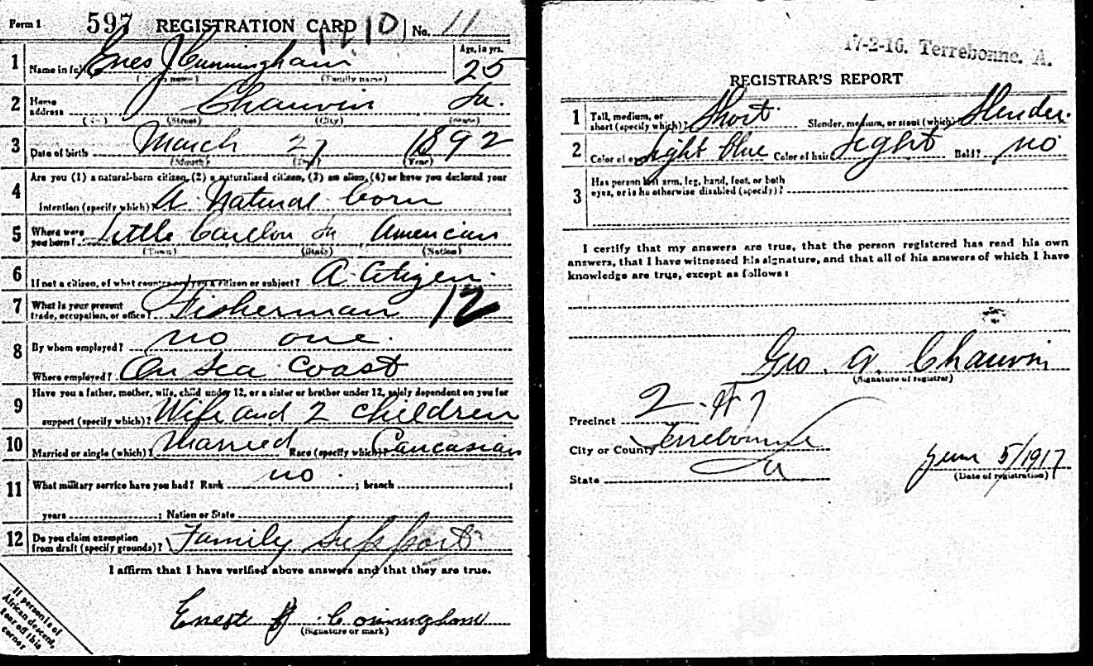 Form 1 597 REGISTRATION CARD 1210 No. 11
1 Name in full Enes J Cunningham Age, in yrs. 25
(Family name)
2 Home address Chauvin La.
(Street) (City) (State)
3 Date of birth March 27 1892
(Month) (Day) (Year)
4 Are you (1) a natural-born citizen, (2) a naturalized citizen, (3) an alien, (4) or have you declared your
intention (specify which)? A Natural born
5 Where were you born? Little Caillou La American
(Town) (State) (Nation)
6 If not a citizen, of what country are you a citizen or subject? A Citizen.
7 What is your present trade, occupation, or office? Fisherman 12
8 By whom employed? no one.
Where employed? On Sea Coast
9 Have you a father, mother, wife, child under 12, or a sister or brother under 12, solely dependent on you for
support (specify which)? Wife and 2 children
10 Married or single (which)? Married Race (specify which)? Caucasian
11 What military service have you had? Rank no ; branch ;
years ; Nation or State
12 Do you claim exemption from draft (specify grounds)? Family Support
I affirm that I have verified above answers and that they are true.
Enest J Coninghom
(Signature or mark)
If person is of
African descent,
tear off this
corner
17-2-16. Terrebonne. A.
REGISTRAR'S REPORT
1 Tall, medium, or short (specify which)? Short Slender, medium, or stout (which)? Slender.
2 Color of eyes Light blue Color of hair Light Bald? no
3 Has person lost arm, leg, hand, foot, or both
eyes, or is he otherwise disabled (specify)?
I certify that my answers are true, that the person registered has read his own
answers, that I have witnessed his signature, and that all of his answers of which I have
knowledge are true, except as follows:
Geo. A. Chauvin
(Signature of registrar)
Precinct 2 - W 7
City or County Terrebonne
State La
June 5/1917
(Date of registration)